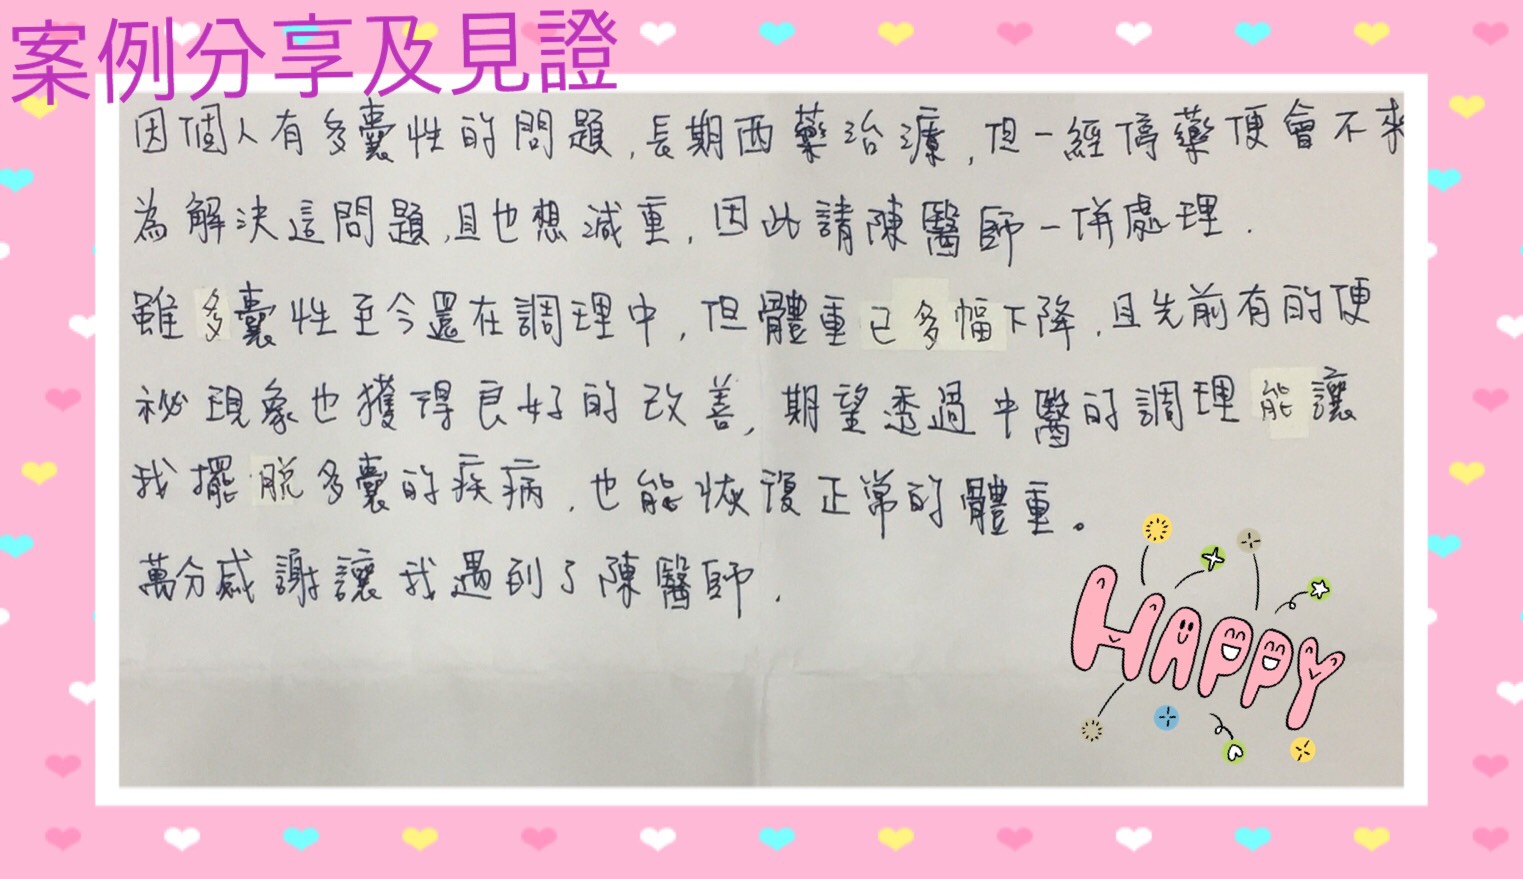 案例分享及見證
因個人有多囊性的問題,長期西藥治療,但一經停藥便會不來
為解決這問題,且也想減重,因此請陳醫師一併處理.
雖多囊性至今還在調理中,但體重已多幅下降,且先前有的便
祕現象也獲得良好的改善,期望透過中醫的調理能讓
我擺脫多囊的疾病,也能恢復正常的體重。
萬分感謝讓我遇到了陳醫師.
HAPPY